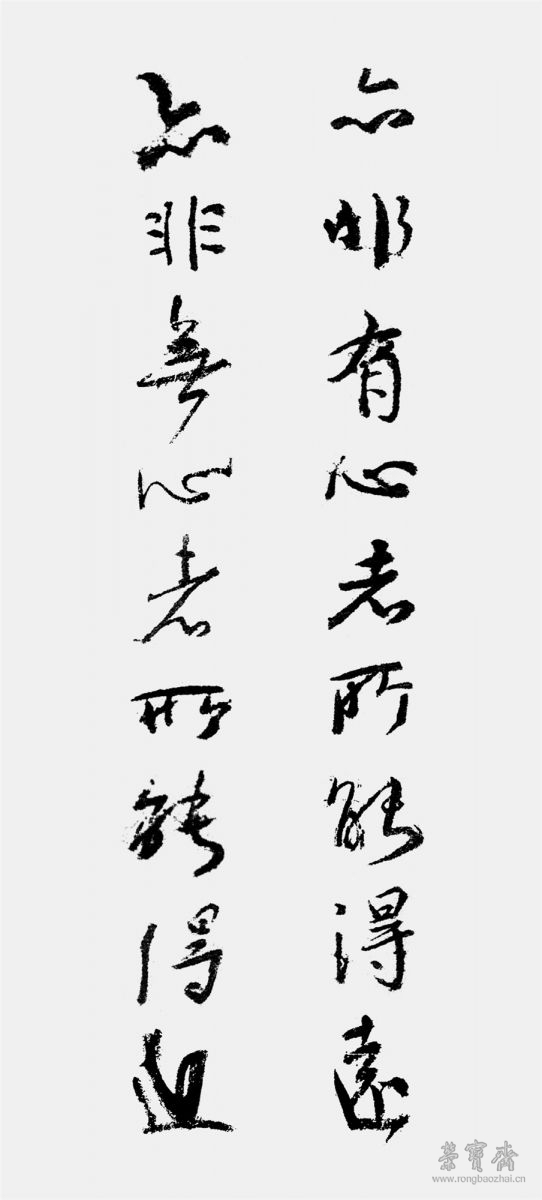 亦非有心者所能得遠
亦非無心者所能得近
榮寶齋
www.rongbaozhai.cn